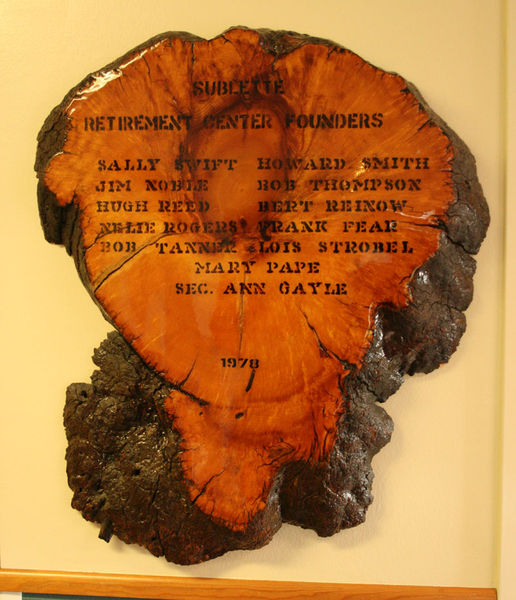 SUBLETTE
RETIREMENT CENTER FOUNDERS
SALLY SWIFT HOWARD SMITH
JIM NOBLE BOB THOMPSON
HUGH REED BERT REINOW
NELIE ROGERS FRANK FEAR
BOB TANNER LOIS STROBEL
MARY PAPE
SEC. ANN GAYLE
1978